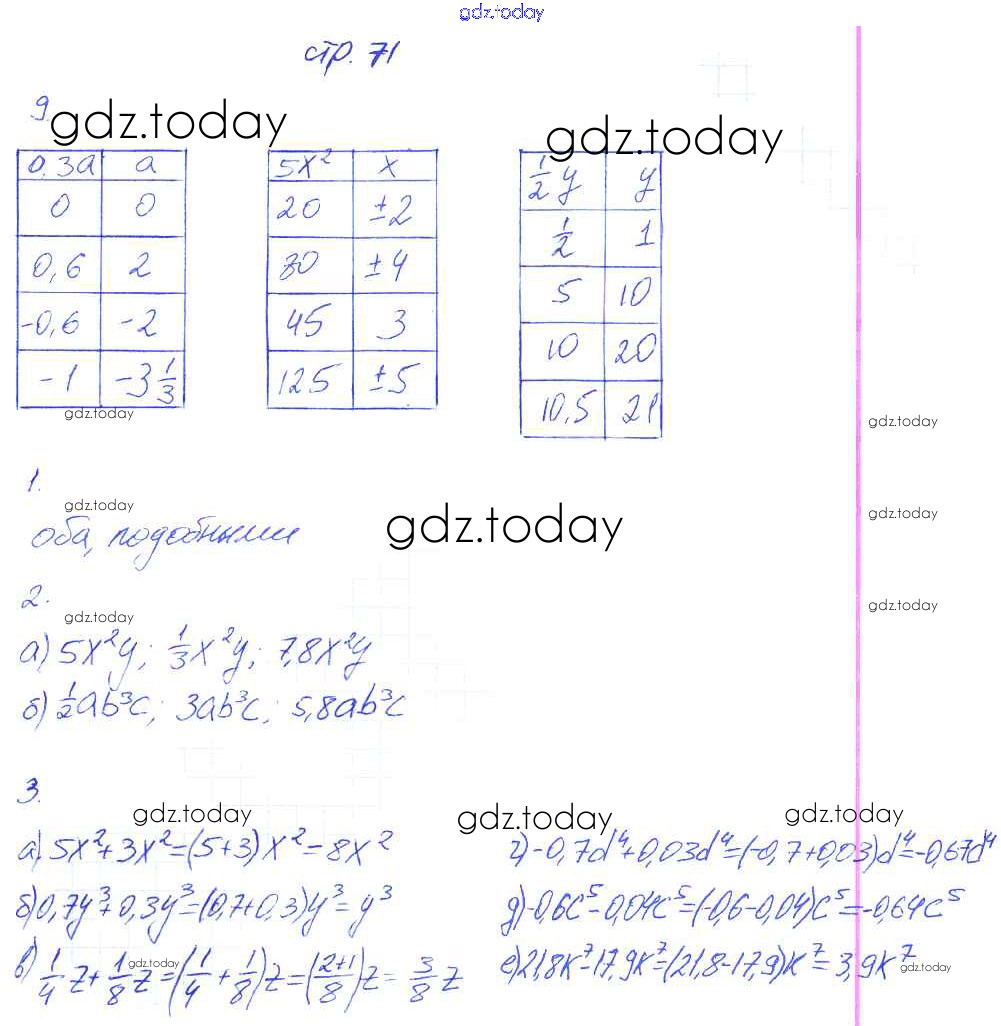 gdz.today
стр. 71
9.
gdz.today
gdz.today
0,3a a
0 0
0,6 2
-0,6 -2
-1 -3 1/3
5x² x
20 ±2
80 ±4
45 3
125 ±5
1/2 y y
1/2 1
5 10
10 20
10,5 21
gdz.today
gdz.today
1.
gdz.today
gdz.today
gdz.today
оба, подобными
2.
gdz.today
gdz.today
а) 5x²y; 1/3 x²y; 7,8x²y
б) 1/2 ab³c; 3ab³c; 5,8ab³c
3.
gdz.today
gdz.today
gdz.today
а) 5x²+3x²=(5+3)x²=8x²
б) 0,7y³+0,3y³=(0,7+0,3)y³=y³
в) 1/4 z+1/8 z=(1/4+1/8)z=(2+1/8)z=3/8 z
gdz.today
г) -0,7d⁴+0,03d⁴=(-0,7+0,03)d⁴=-0,67d⁴
д) -0,6c⁵-0,04c⁵=(-0,6-0,04)c⁵=-0,64c⁵
е) 21,8k⁷-17,9k⁷=(21,8-17,9)k⁷=3,9k⁷
gdz.today